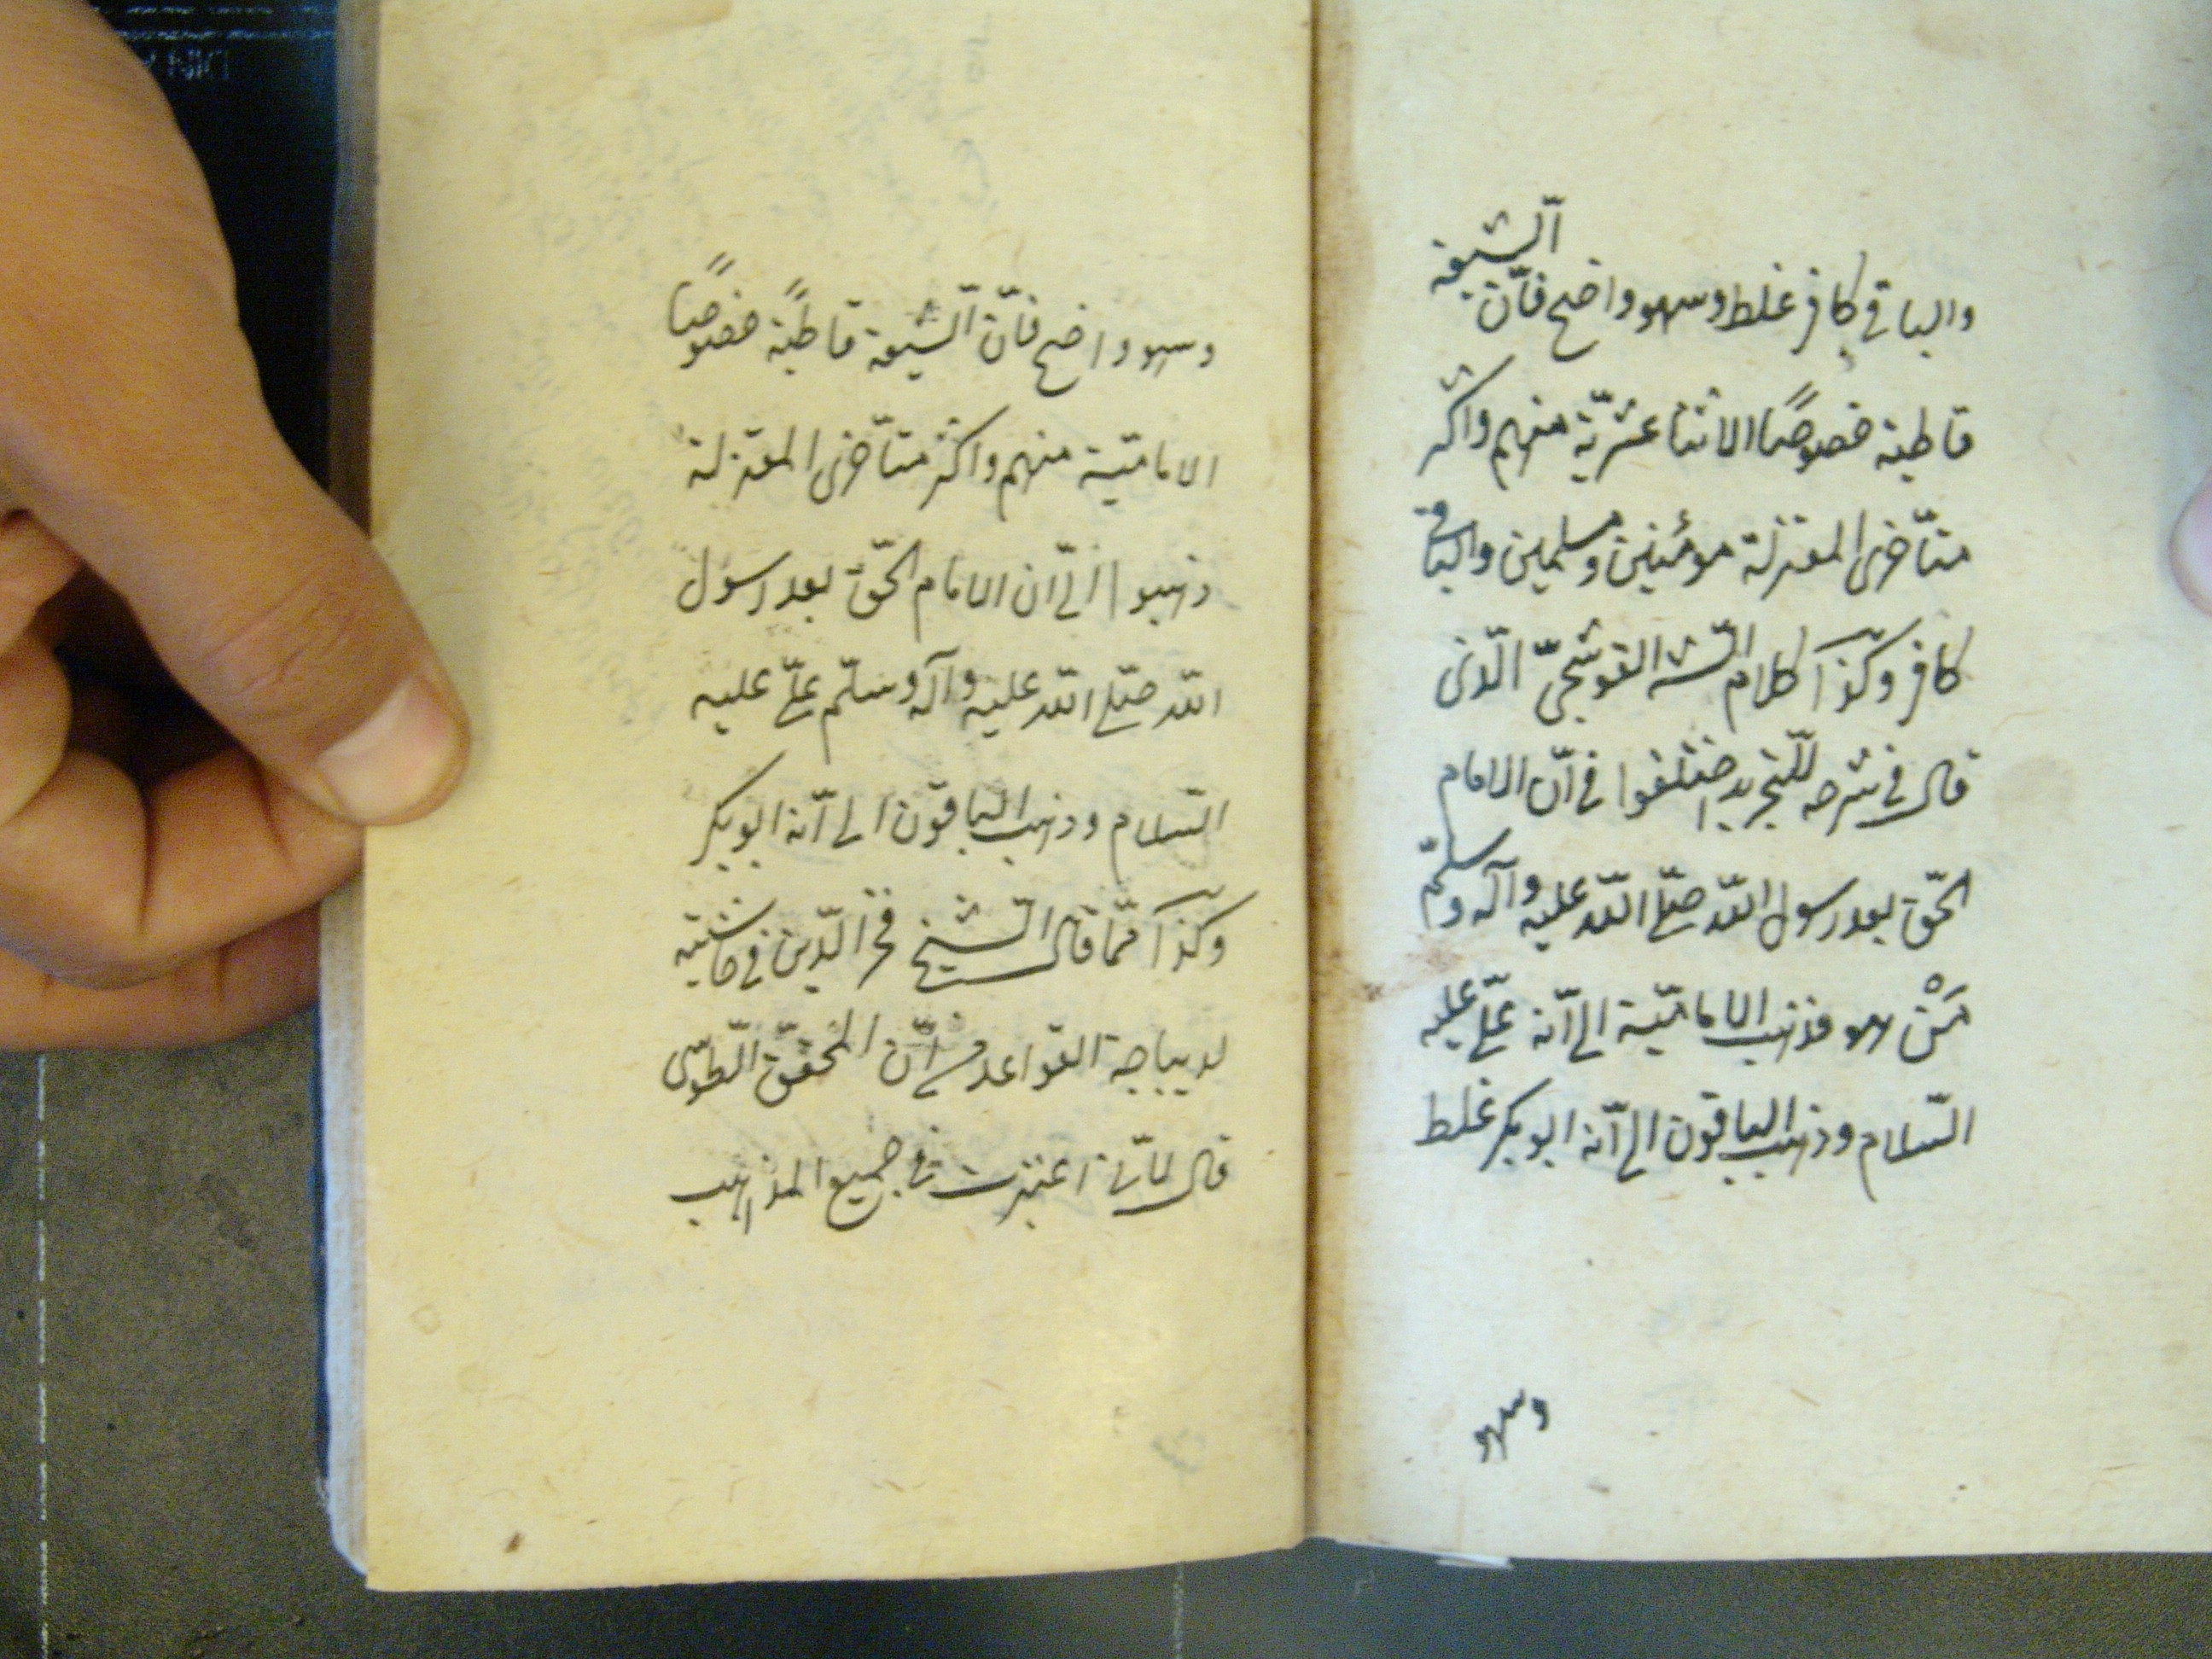 والباقي كافر غلط وسهو واضح فانّ الشيعة
قاطبة خصوصًا الاثنا عشريّة منهم واكثر
متأخرى المعتزلة مؤمنين ومسلمين والباقى
كافر وكذا كلام القوشجىّ الّذى
قال فى شرحه للتجريد اختلفوا فى انّ الامام
الحقّ بعد رسول اللّه صلّى اللّه عليه وآله وسلّم
مَنْ هو فذهب الاماميّة الى انّه علىّ عليه
السّلام وذهب الباقون الى انّه ابو بكر غلط
وسهو
وسهو واضح فانّ الشّيعة قاطبةً خصوصًا
الاماميّة منهم واكثر متأخرى المعتزلة
ذهبوا الى انّ الامام الحقّ بعد رسول
اللّه صلّى اللّه عليه وآله وسلّم علىّ عليه
السّلام وذهب الباقون الى انّه ابو بكر
وكذا ممّا قال الشّيخ فخر الدّين فى حاشيته
لديباجة القواعد من انّ المحقّق الطّوسى
قال انّى اعتبرت فى جميع المذاهب